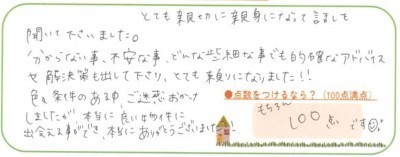 とても親切に親身になって話しを
聞いて下さいました。
分からない事、不安な事、どんな些細な事でも的確なアドバイス
や解決策も出して下さり、とても頼りになりました!!
色々条件のある中、ご迷惑おかけ
しましたが、本当に良い物件に
出会える事ができ、本当にありがとうございました!
●点数をつけるなら?(100点満点)
もちろん
100点です